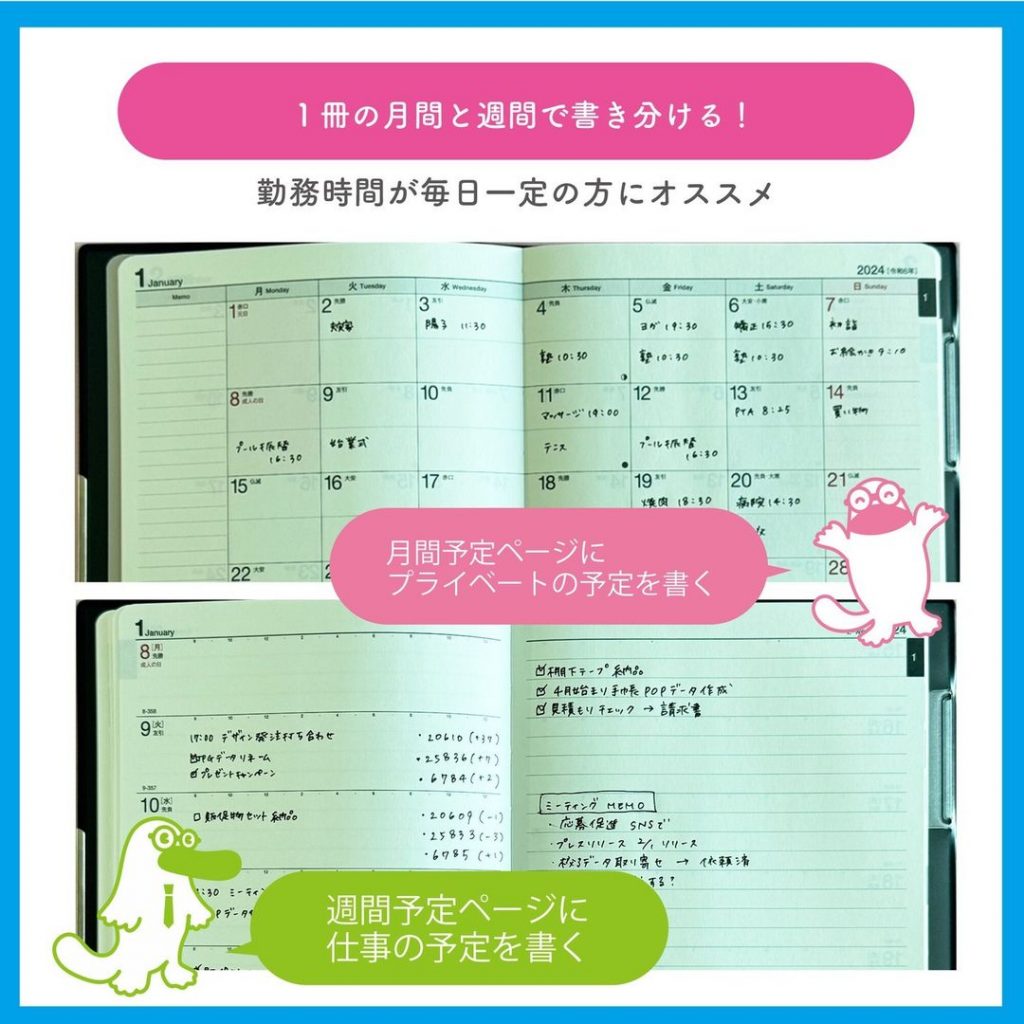 １冊の月間と週間で書き分ける！
勤務時間が毎日一定の方にオススメ
1 January
2024［令和6年］
Memo
月 Monday
火 Tuesday
水 Wednesday
木 Thursday
金 Friday
土 Saturday
日 Sunday
1
1 赤口
元日
2 先勝
3 友引
陽子 11:30
4 先負
塾 10:30
5 仏滅
ヨガ 19:30
塾 10:30
6 大安・小寒
矯正 15:30
塾 10:30
7 赤口
初詣
お絵かき 9:10
8 先勝
成人の日
プール振替
16:30
9 友引
始業式
10 先負
11 赤口
マッサージ 19:00
テニス
12 先勝
プール振替
16:30
13 友引
PTA 8:25
14 先負
買い物
15 仏滅
16 大安
17 赤口
18 先勝
19 友引
焼肉 18:30
20 先負・大寒
病院 14:30
21 仏滅
22 大安
28
月間予定ページに
プライベートの予定を書く
1 January
8 ［月］
先勝
成人の日
8-358
9 ［火］
友引
17:00 デザイン発注打ち合わせ
プレゼントキャンペーン
・20610 (+37)
・25836 (+7)
・6784 (+2)
9-357
10 ［水］
先負
販促物セット納品
・20609 (-1)
・25833 (-3)
・6785 (+1)
棚下テープ納品
4月始まり手帳POPデータ作成
見積もりチェック → 請求書
1
ミーティング MEMO
・応募促進 SNSで
・プレスリリース 2/1 リリース
データ取り寄せ → 依頼済
する？
週間予定ページに
仕事の予定を書く